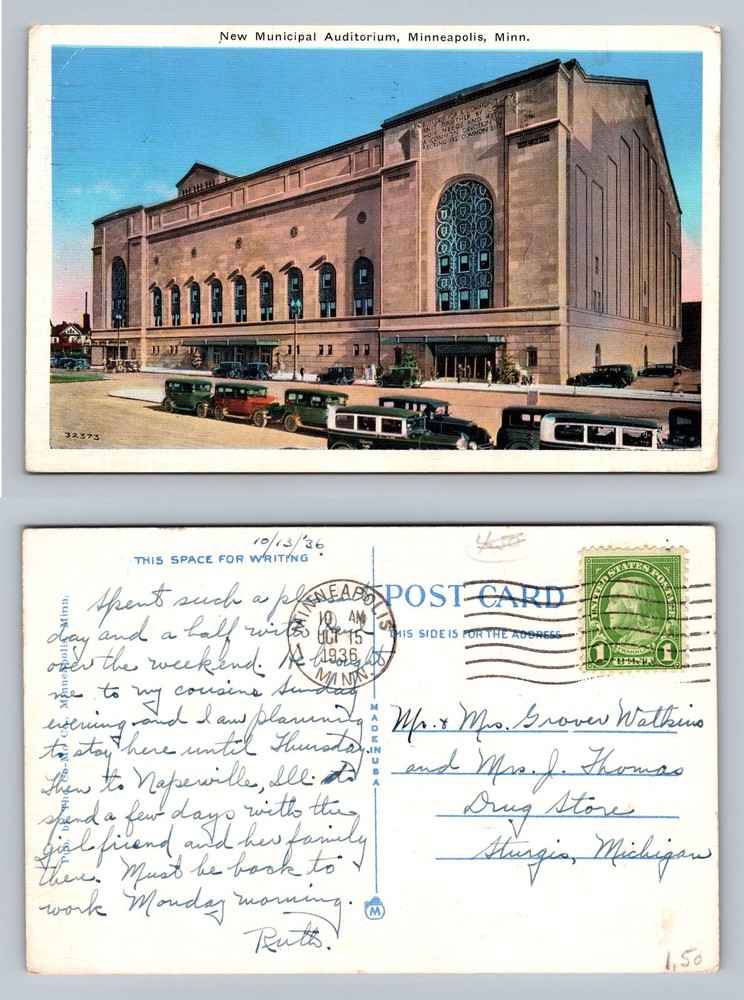 New Municipal Auditorium, Minneapolis, Minn.
32373
10/13/'36
THIS SPACE FOR WRITING
Spent such a pleasant
day and a half with
over the weekend. He brought
me to my cousins Sunday
evening and I am planning
to stay here until Thursday.
Then to Naperville, Ill. to
spend a few days with the
girl friend and her family
there. Must be back to
work Monday morning.
Ruth.
Pub. by The Co-Mo Co., Minneapolis, Minn.
MADE IN USA
M
MINNEAPOLIS
10 AM
OCT 15
1936
MINN.
POST CARD
THIS SIDE IS FOR THE ADDRESS
UNITED STATES POSTAGE
FRANKLIN
1 1
Mr. & Mrs. Grover Watkins
and Mrs. J. Thomas
Drug Store
Sturgis, Michigan
1.50